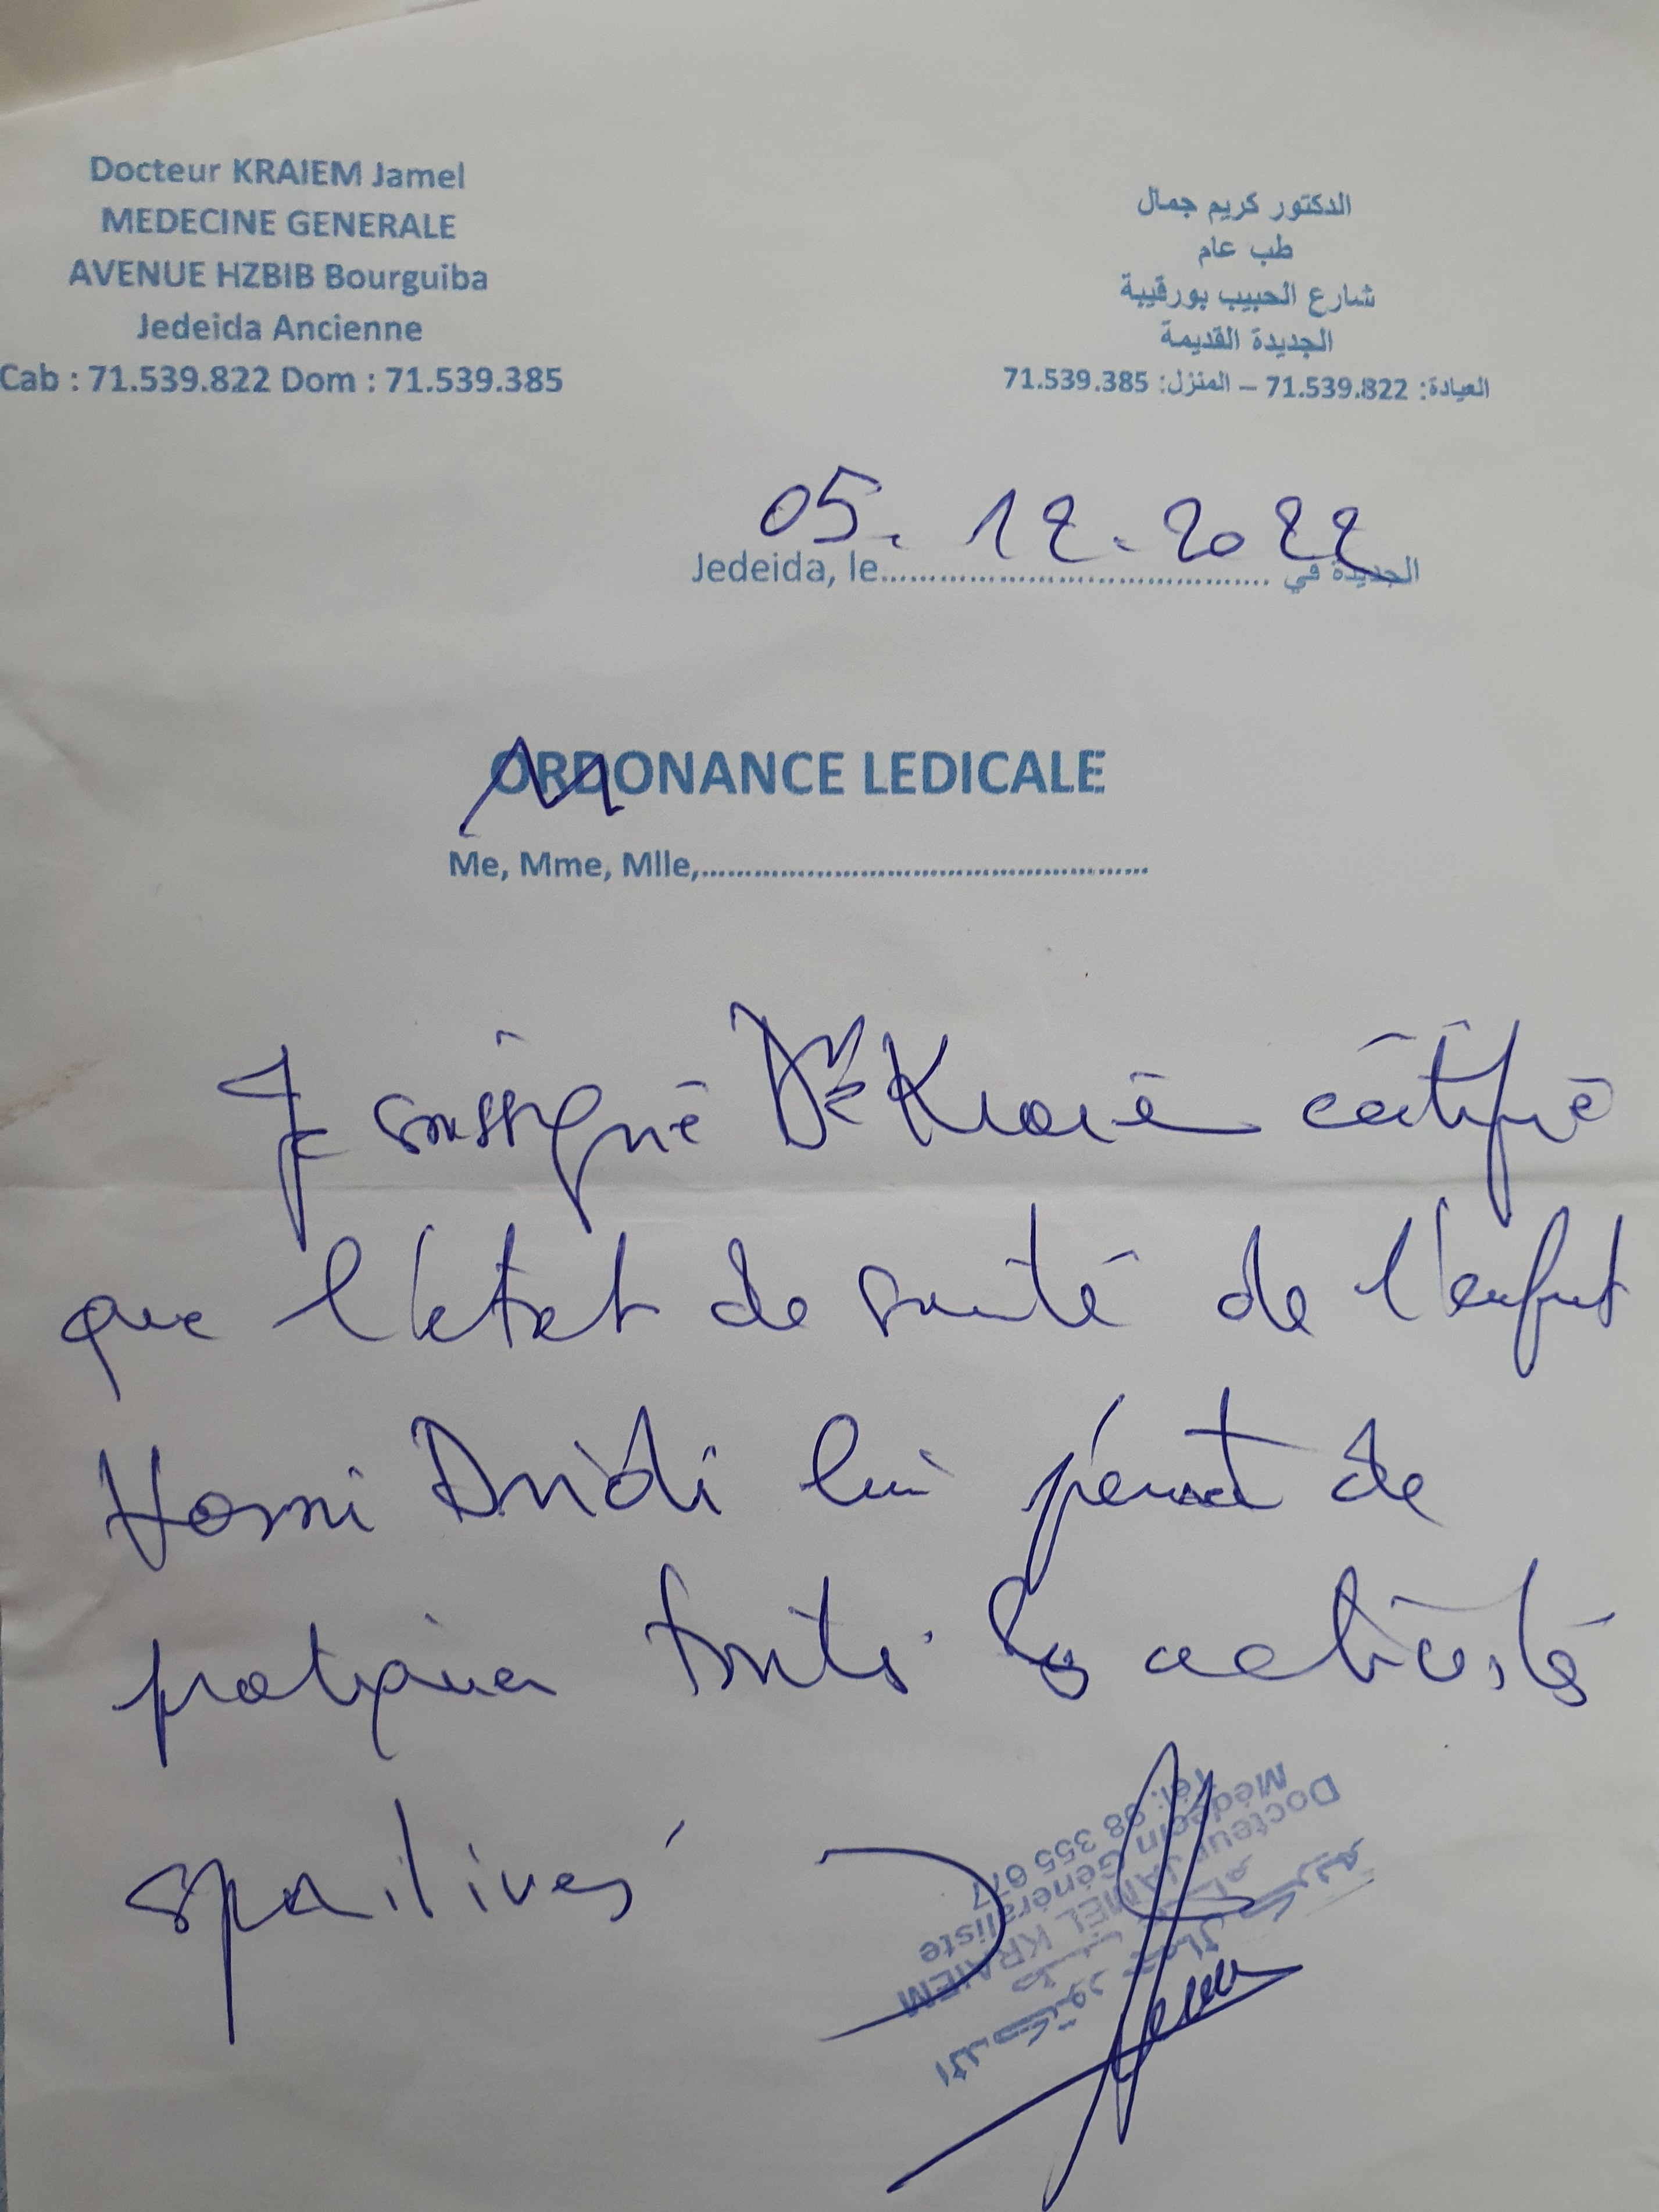 Docteur KRAIEM Jamel
MEDECINE GENERALE
AVENUE HZBIB Bourguiba
Jedeida Ancienne
Cab : 71.539.822 Dom : 71.539.385
الدكتور كريم جمال
طب عام
شارع الحبيب بورقيبة
الجديدة القديمة
العيادة: 71.539.822 – المنزل: 71.539.385
05. 12. 2022
Jedeida, le.......................................... الجديدة في
ORDONANCE LEDICALE
Me, Mme, Mlle,......................................................
Je soussigné Dr Kraiem certifie
que l'état de santé de l'enfant
Hosni Dridi lui permet de
pratiquer toutes les activités
sportives
الدكتور جمال كريم
طب عام
Docteur JAMEL KRAIEM
Médecin Généraliste
Tél: 98 355 677